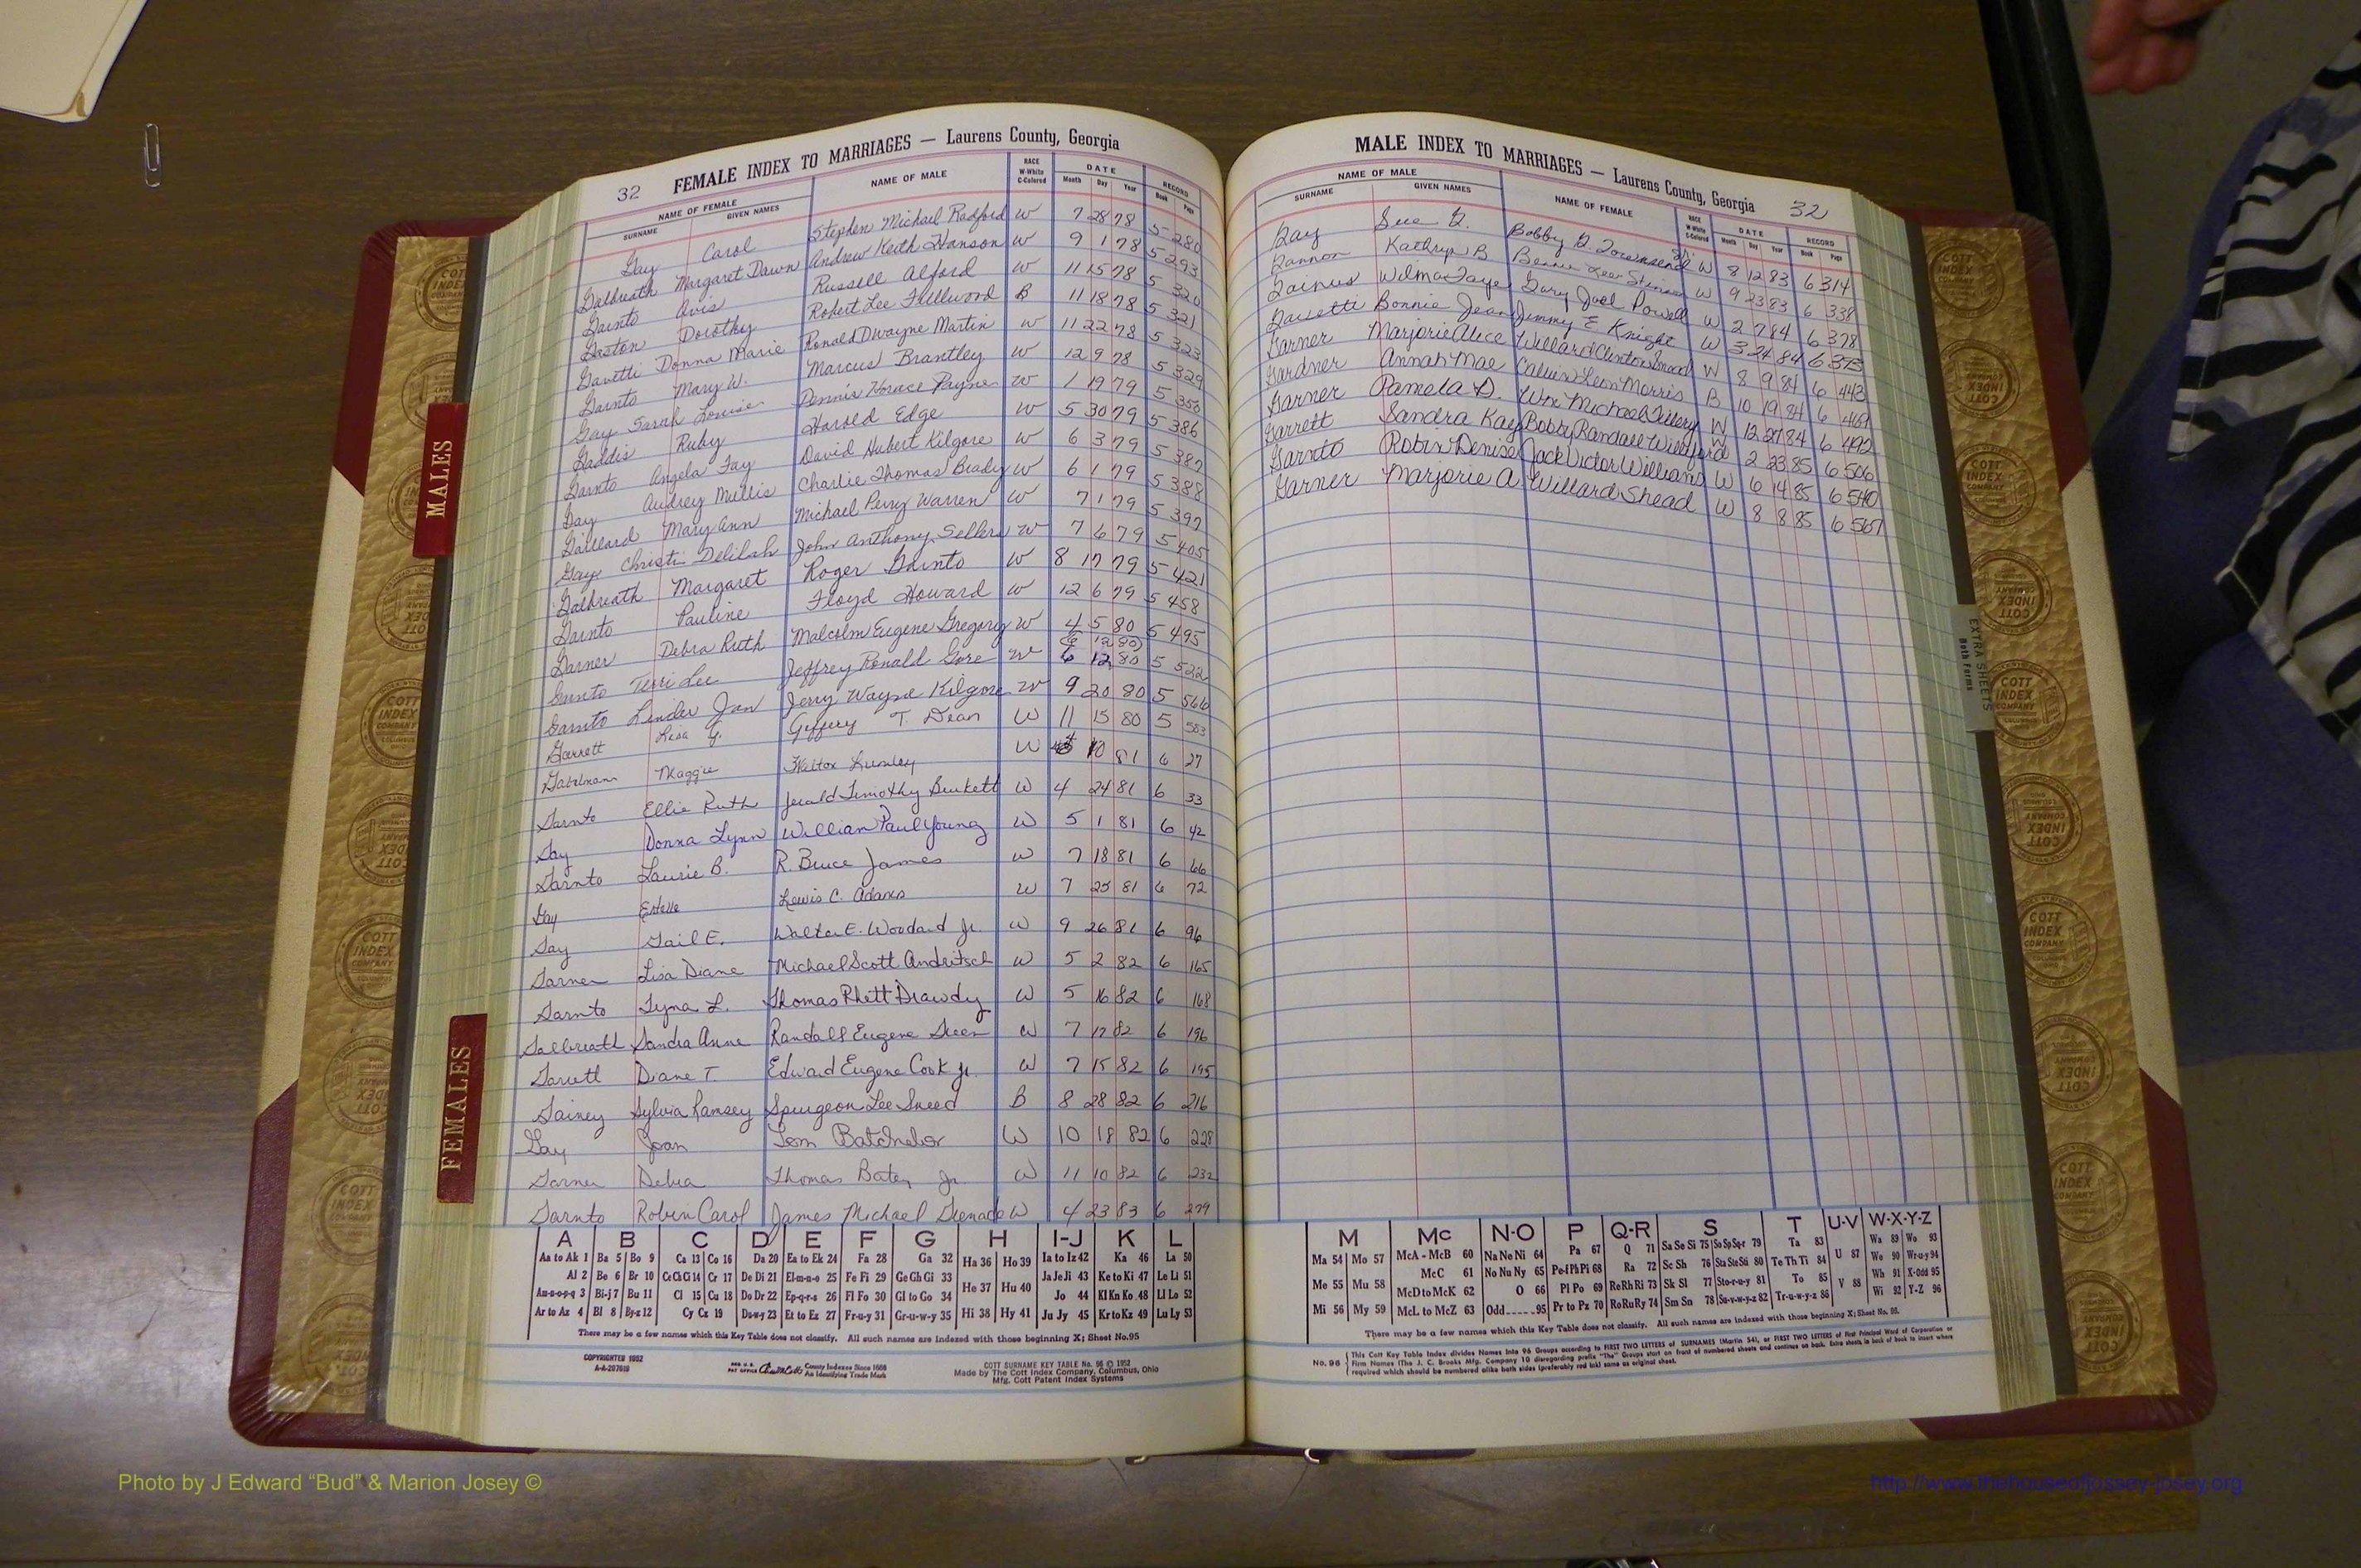 32 FEMALE INDEX TO MARRIAGES — Laurens County, Georgia
NAME OF FEMALE NAME OF MALE RACE W-White C-Colored DATE RECORD
SURNAME GIVEN NAMES Month Day Year Book Page
Gay Carol Stephen Michael Radford W 7 28 78 5 280
Galbreath Margaret Dawn Andrew Keith Hanson W 9 1 78 5 293
Garnto Avis Russell Alford W 11 15 78 5 320
Gaston Dorothy Robert Lee Fullwood B 11 18 78 5 321
Donna Marie Ronald Dwayne Martin W 11 22 78 5 323
Garnto Mary W. Marcus Brantley W 12 9 78 5 329
Gay Sarah Louise Dennis Horace Payne W 1 19 79 5 350
Gaddis Ruby Harold Edge W 5 30 79 5 386
Garnto Angela Fay David Hubert Kilgore W 6 3 79 5 387
Gay Audrey Mullis Charlie Thomas Brady W 6 1 79 5 388
Gaillard Mary Ann Michael Perry Warren W 7 1 79 5 397
Gay Christi Delilah John Anthony Sellers W 7 6 79 5 405
Galbreath Margaret Roger Garnto W 8 17 79 5 421
Garnto Pauline Floyd Howard W 12 6 79 5 458
Garner Debra Ruth Malcolm Eugene Gregory W 4 5 80 5 495
Garnto Terri Lee Jeffrey Ronald Gore W 6 12 80 5 522
Garnto Linda Jan Jerry Wayne Kilgore W 9 20 80 5 566
Garrett Lisa G. Geffery T. Dean W 11 15 80 5 583
Maggie Lumley W 10 81 6 27
Garnto Ellie Ruth Jerald Timothy Burkett W 4 24 81 6 33
Gay Donna Lynn William Paul Young W 5 1 81 6 42
Garnto Laurie B. R. Bruce James W 7 18 81 6 66
Gay Estelle Lewis C. Adams W 7 25 81 6 72
Gay Gail E. Walter E. Woodard Jr. W 9 26 81 6 96
Garner Lisa Diane Michael Scott Andritsch W 5 2 82 6 165
Garnto Tyna L. Thomas Rhett Drawdy W 5 16 82 6 168
Galbreath Sandra Anne Randall Eugene W 7 17 82 6 196
Garrett Diane T. Edward Eugene Cook Jr. W 7 15 82 6 195
Gainey Sylvia Ramsey Spurgeon Lee Sneed B 8 28 82 6 216
Gay Joan Tom Batchelor W 10 18 82 6 228
Garner Debra Thomas Bates Jr W 11 10 82 6 232
Garnto Robin Carol James Michael W 4 23 83 6 279
A B C D E F G H I-J K L
Aa to Ak 1 Ba 5 Bo 9 Ca 13 Co 16 Da 20 Ea to Ek 24 Fa 28 Ga 32 Ha 36 Ho 39 Ia to Iz 42 Ka 46 La 50
Al 2 Be 6 Br 10 Ce Ch Ci 14 Cr 17 De Di 21 El-m-n-o 25 Fe Fi 29 Ge Gh Gi 33 He 37 Hu 40 Ja Je Ji 43 Ke to Ki 47 Le Li 51
Am-n-o-p-q 3 Bi-j 7 Bu 11 Cl 15 Cu 18 Do Dr 22 Ep-q-r-s 26 Fl Fo 30 Gl to Go 34 Jo 44 Kl Kn Ko 48 Ll Lo 52
Ar to Az 4 Bl 8 By-z 12 Cy Cz 19 Du-w-y 23 Et to Ez 27 Fr-u-y 31 Gr-u-w-y 35 Hi 38 Hy 41 Ju Jy 45 Kr to Kz 49 Lu Ly 53
There may be a few names which this Key Table does not classify. All such names are indexed with those beginning X; Sheet No.95
COPYRIGHTED 1952
REG. U.S. PAT OFFICE County Indexes Since 1888
An Identifying Trade Mark
COTT SURNAME KEY TABLE No. 96 © 1952
Made by The Cott Index Company, Columbus, Ohio
Mfg. Cott Patent Index Systems
MALE INDEX TO MARRIAGES — Laurens County, Georgia 32
NAME OF MALE NAME OF FEMALE RACE W-White C-Colored DATE RECORD
SURNAME GIVEN NAMES Month Day Year Book Page
Gay Sue G. Bobby G. Townsend W 8 12 83 6 314
Gannon Kathryn B W 9 23 83 6 338
Gainus Wilma Faye Gary Joel Powell W 2 7 84 6 378
Bonnie Jean Jimmy E Knight W 3 24 84 6 393
Garner Marjorie Alice Willard Clinton W 8 9 84 6 443
Gardner Annah Mae Calvin Leon Morris B 10 19 84 6 469
Garner Pamela D. Wm Michael Tillery W 12 27 84 6 492
Garrett Sandra Kay Bobby Randall Williford W 2 23 85 6 506
Garnto Robin Denise Jack Victor Williams W 6 14 85 6 540
Garner Marjorie A. Willard Shead W 8 8 85 6 567
M Mc N-O P Q-R S T U-V W-X-Y-Z
Ma 54 Mo 57 McA - McB 60 Na Ne Ni 64 Pa 67 Q 71 Sa Se Si 75 So Sp Sq-r 79 Ta 83 U 87 Wa 89 Wo 93
Me 55 Mu 58 McC 61 No Nu Ny 65 Pe-f Ph Pi 68 Ra 72 Sc Sh 76 Sta Ste Sti 80 Te Th Ti 84 We 90 Wr-u-y 94
McD to McK 62 O 66 Pl Po 69 Re Rh Ri 73 Sk Sl 77 Sto-r-u-y 81 To 85 V 88 Wh 91 X-Odd 95
Mi 56 My 59 McL to McZ 63 Odd 95 Pr to Pz 70 Ro Ru Ry 74 Sm Sn 78 Su-v-w-y-z 82 Tr-u-w-y-z 86 Wi 92 Y-Z 96
There may be a few names which this Key Table does not classify. All such names are indexed with those beginning X; Sheet No. 95.
No. 96 This Cott Key Table Index divides Names into 96 Groups according to FIRST TWO LETTERS of SURNAMES (Martin 54), or FIRST TWO LETTERS of First Principal Word of Corporation or
Firm Names (The J. C. Brooks Mfg. Company 10 disregarding prefix "The") Groups start on front of numbered sheets and continue on back. Extra sheets in back of book to insert where
required which should be numbered alike both sides (preferably red ink) same as original sheet.
MALES
FEMALES
EXTRA SHEETS
Both Forms
COTT INDEX COMPANY
Photo by J Edward “Bud” & Marion Josey ©
http://www.thehouseofjossey-josey.org